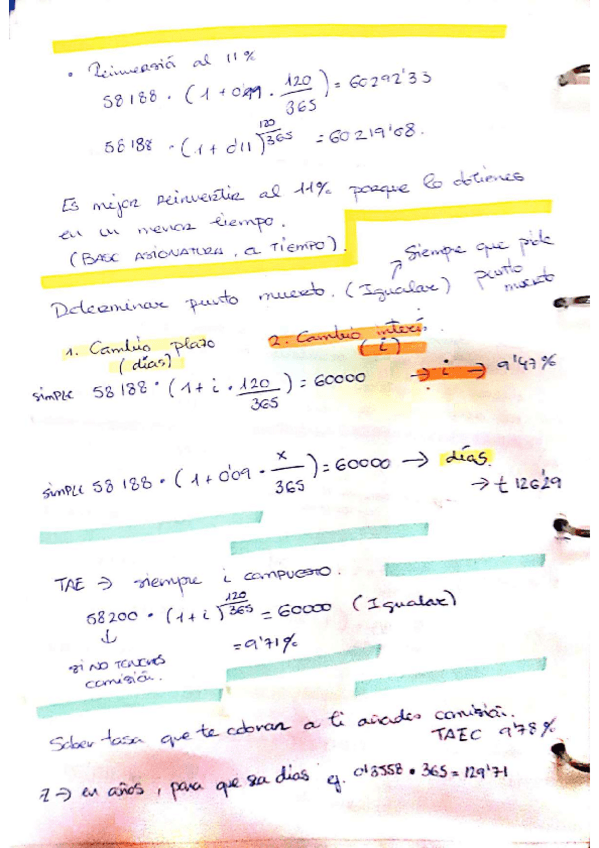 • Reinversión al 11%
58188 · (1 + 0'11 · 120/365) = 60292'33
58188 · (1 + 0'11)^120/365 = 60219'68.
Es mejor reinvertir al 11% porque lo obtienes
en un menor tiempo.
(BASE ASIGNATURA, a TIEMPO).
Siempre que pide
punto
muerto
Determinar punto muerto. (Igualar)
1. Cambio plazo
(días)
2. Cambio interés.
(i)
SIMPLE 58188 · (1 + i · 120/365) = 60000 → i → 9'47%
SIMPLE 58188 · (1 + 0'09 · x/365) = 60000 → días.
→ t 126'29
TAE → siempre i COMPUESTO.
58200 · (1 + i)^120/365 = 60000 (Igualar)
↓
= 9'71%
SI NO TENEMOS
comisión.
Saber tasa que te cobran a ti añades comisión.
TAEC 9'78%
→ en años, para que sea días ej. 0'3558 · 365 = 129'71